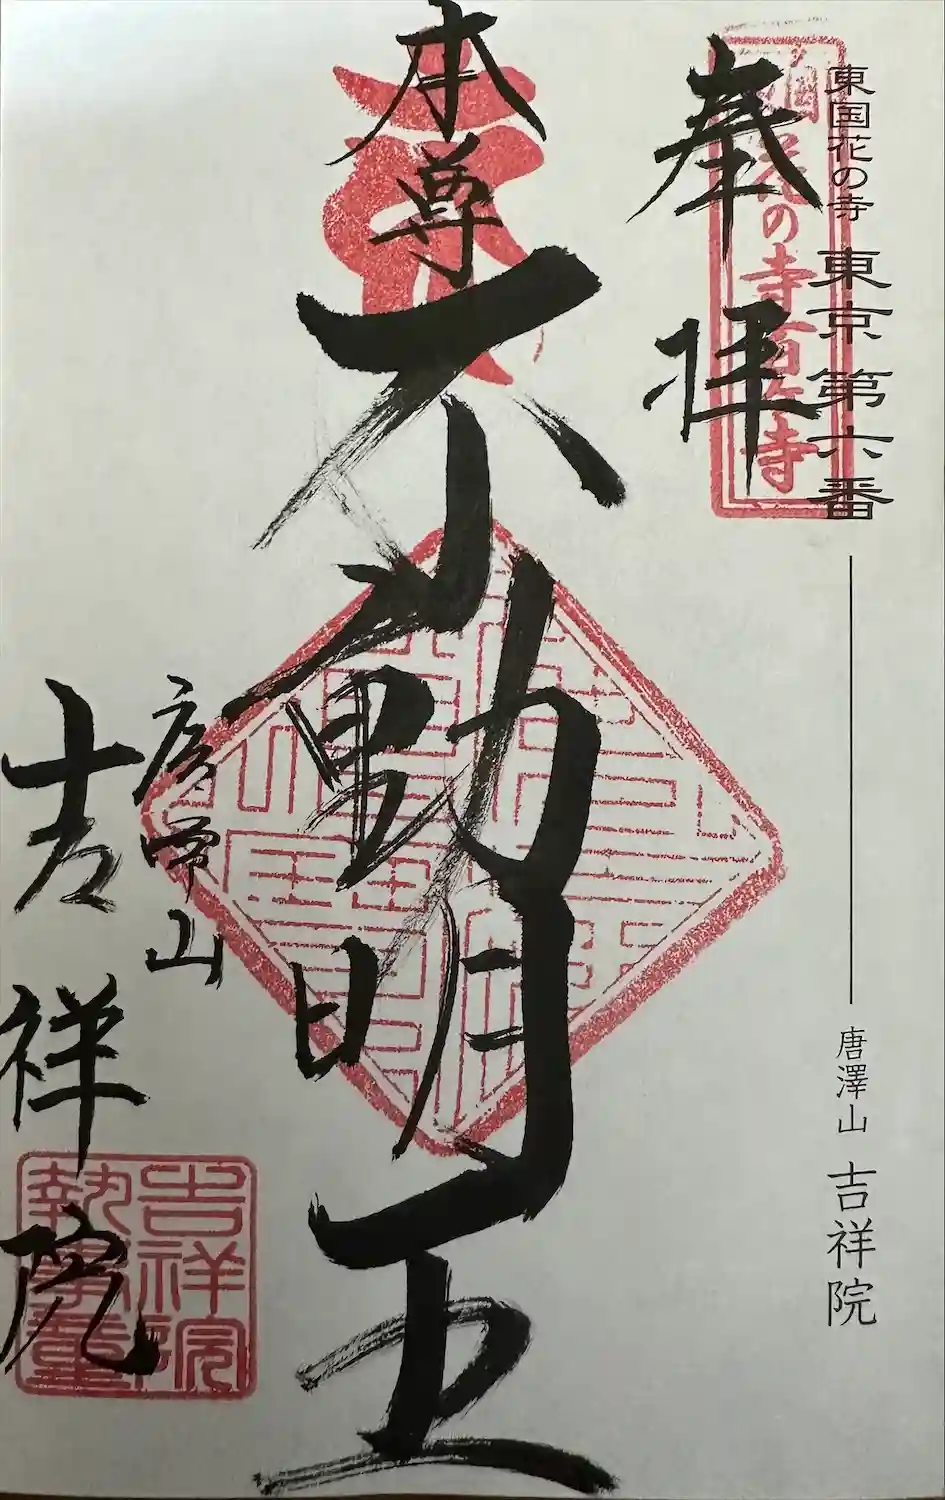 東国花の寺 東京第六番 唐澤山 吉祥院
東国花の寺百ヶ寺
奉拝
本尊
不動明王
唐澤山
吉祥院
吉祥院
執事章